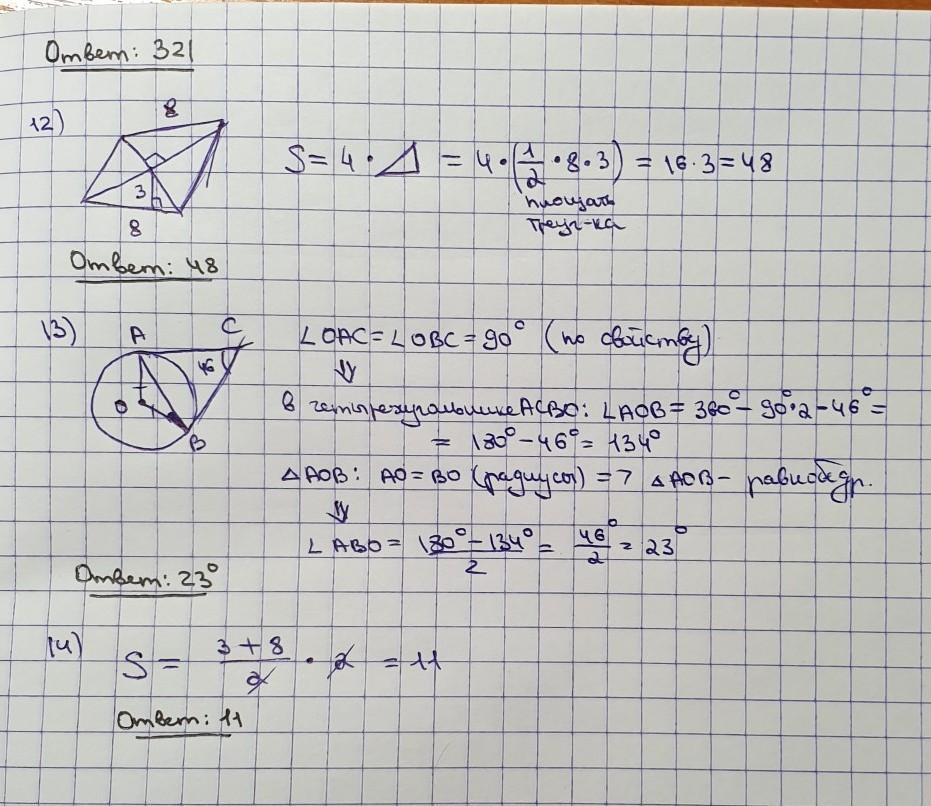 Ответ: 321
12)
8
3
8
S = 4 · △ = 4 · (1/2 · 8 · 3) = 16 · 3 = 48
площадь
треуг-ка
Ответ: 48
13)
A
C
46
O
B
∠OAC = ∠OBC = 90° (по свойству)
⇓
в четырехугольнике ACBO: ∠AOB = 360° - 90°·2 - 46° =
= 180° - 46° = 134°
△AOB: AO = BO (радиусы) => △AOB - равнобедр.
⇓
∠ABO = (180° - 134°)/2 = 46°/2 = 23°
Ответ: 23°
14)
S = (3 + 8)/2 · 2 = 11
Ответ: 11